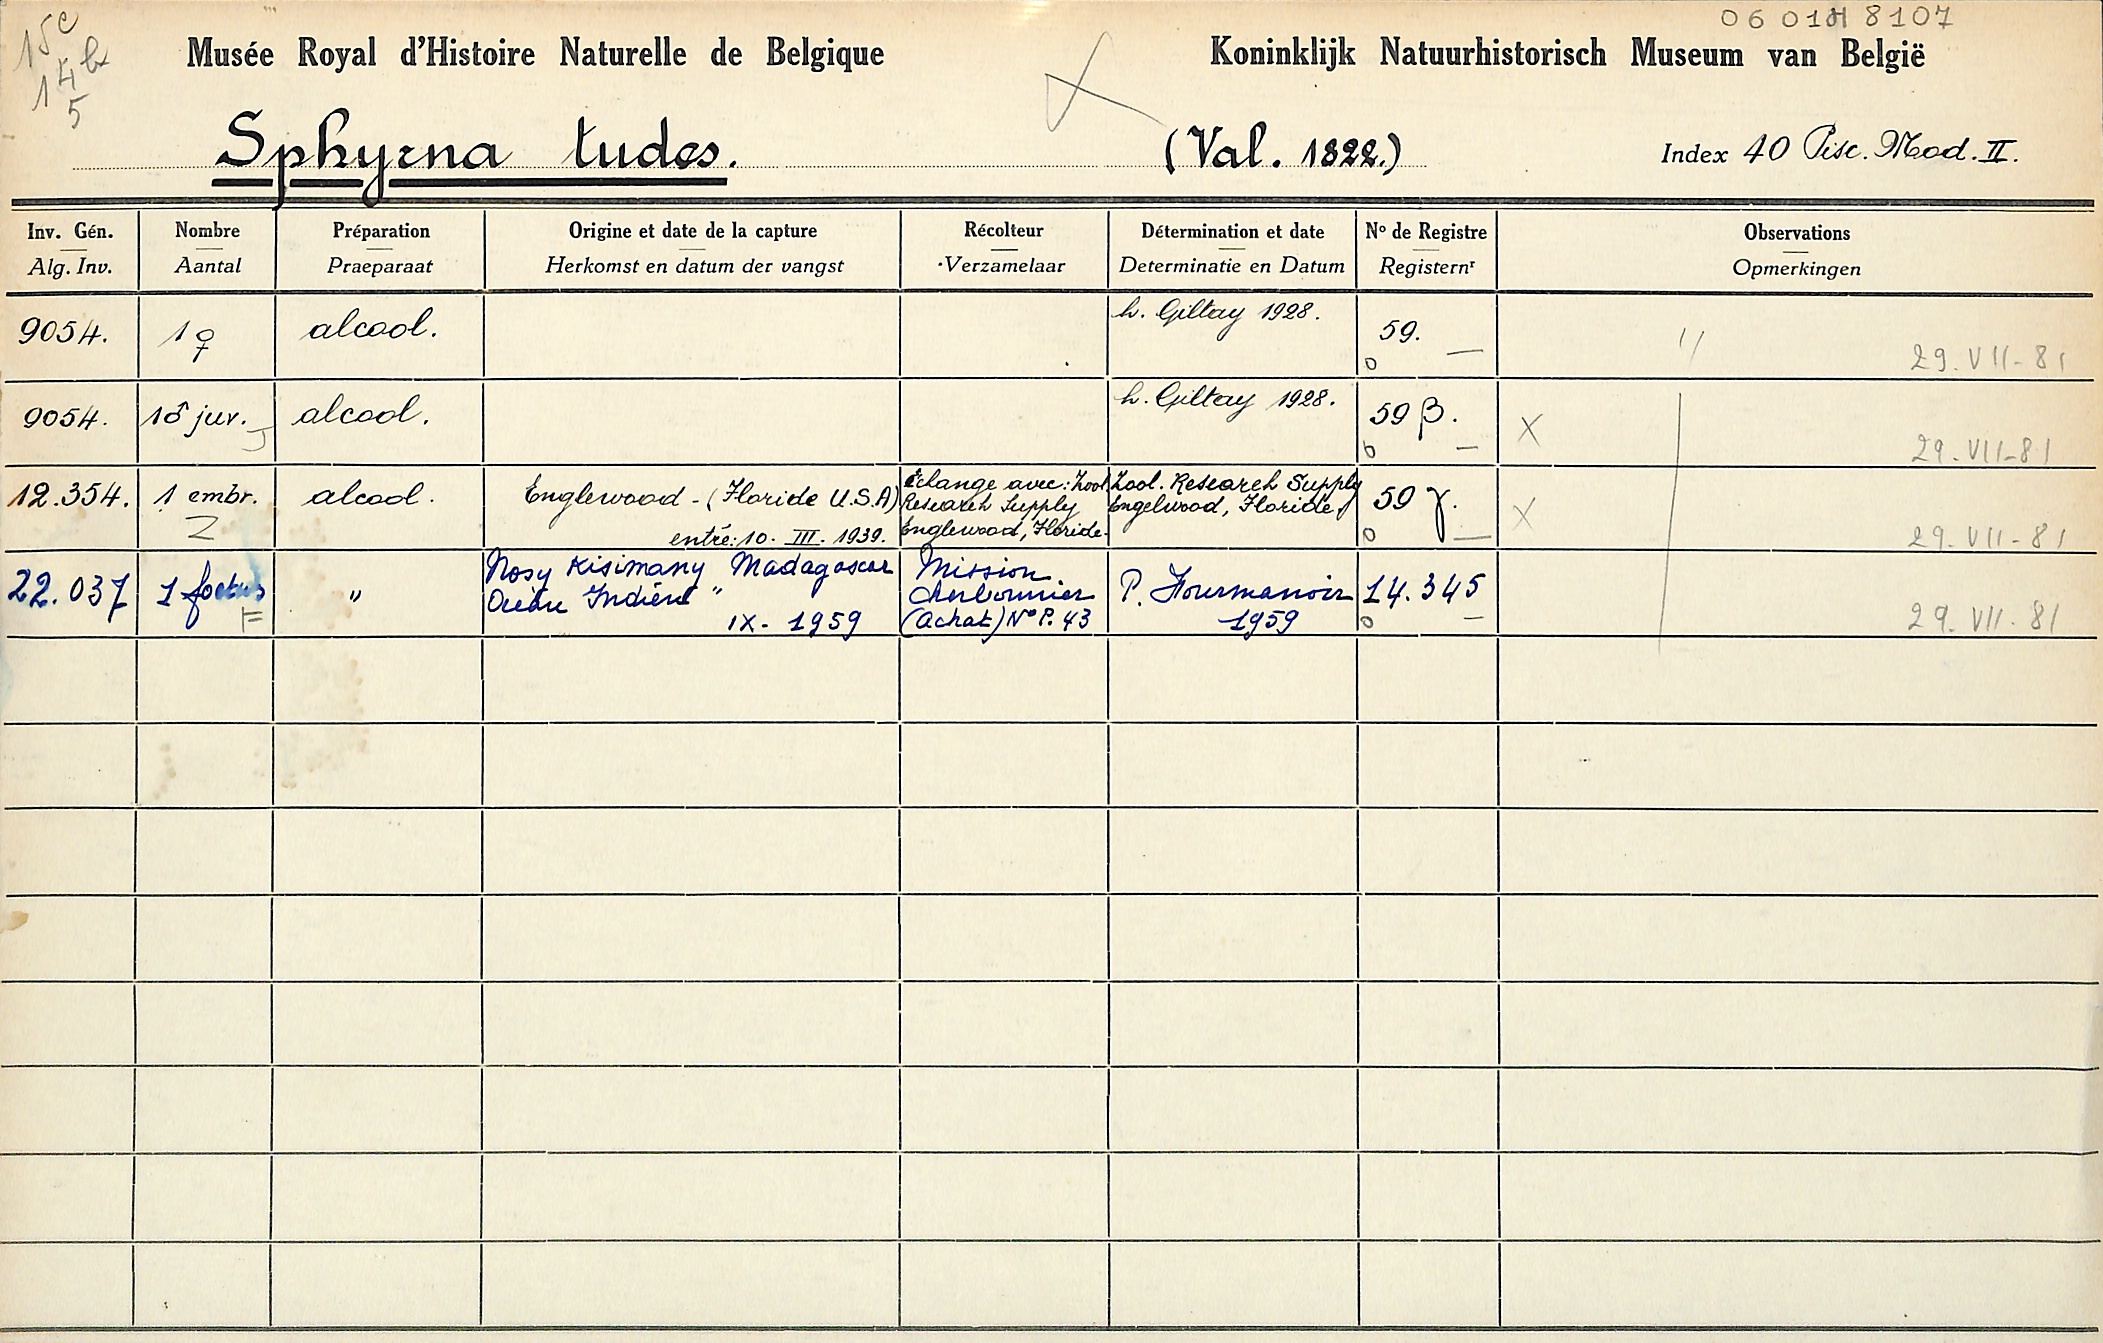 15c
14b
5
06 01H 8107
Musée Royal d'Histoire Naturelle de Belgique
Koninklijk Natuurhistorisch Museum van België
Sphyrna tudes.
(Val. 1822.)
Index 40 Pisc. Mod. II.
Inv. Gén.
Alg. Inv.
Nombre
Aantal
Préparation
Praeparaat
Origine et date de la capture
Herkomst en datum der vangst
Récolteur
Verzamelaar
Détermination et date
Determinatie en Datum
Nº de Registre
Registernʳ
Observations
Opmerkingen
9054.
1 ♀
alcool.
h. Giltay 1928.
59.
29. VII-81
9054.
1♂ juv.
alcool.
h. Giltay 1928.
59 β.
X
29. VII-81
12.354.
1 embr.
alcool.
Englewood - (Floride U.S.A)
entré: 10. III. 1939.
Echange avec: Zool.
Research Supply
Englewood, Floride.
Zool. Research Supply
Engelwood, Floride.
59 γ.
X
29. VII-81
22.037
1 foetus
"
Nosy Kisimany Madagascar
Océan Indien "
IX- 1959
Mission
Cherbonnier
(achat) Nº P. 43
P. Fourmanoir
1959
14.345
29. VII. 81